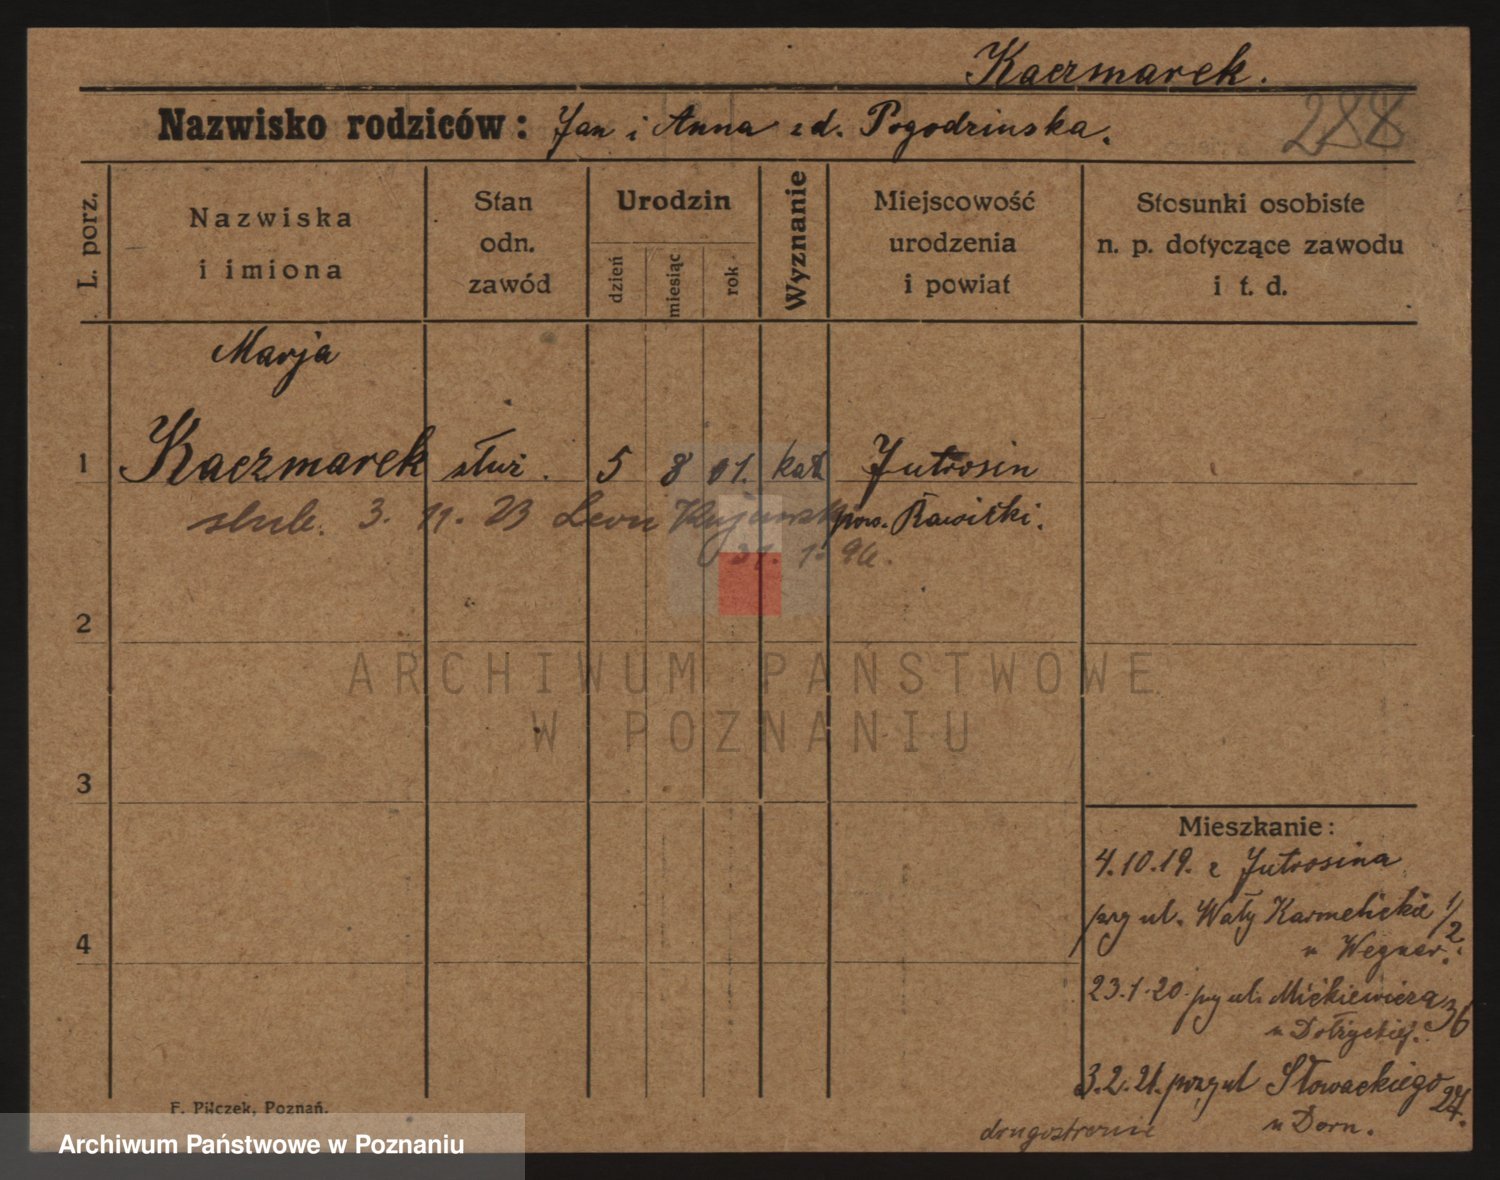 Kaczmarek.
288
Nazwisko rodziców: Jan i Anna zd. Pogodzinska.
L. porz.
Nazwiska
i imiona
Stan
odn.
zawód
Urodzin
dzień
miesiąc
rok
Wyznanie
Miejscowość
urodzenia
i powiat
Stosunki osobiste
n. p. dotyczące zawodu
i t. d.
Marja
1 Kaczmarek służ. 5 8 01. kat. Jutrosin
pow. Rawicki.
slub. 3. 11. 23 Leon Kujawski
31. 1. 96.
2
3
4
Mieszkanie:
4.10.19. z Jutrosina
pry ul. Wały Karmelickie 1/2
u Wegner.
23.1.20. pry ul. Mickiewicza 36
u Dołżyckiej.
3.2.21. przy ul Słowackiego 27.
u Dorn.
drugostronnie
F. Pilczek, Poznań.
ARCHIWUM PAŃSTWOWE
W POZNANIU
Archiwum Państwowe w Poznaniu